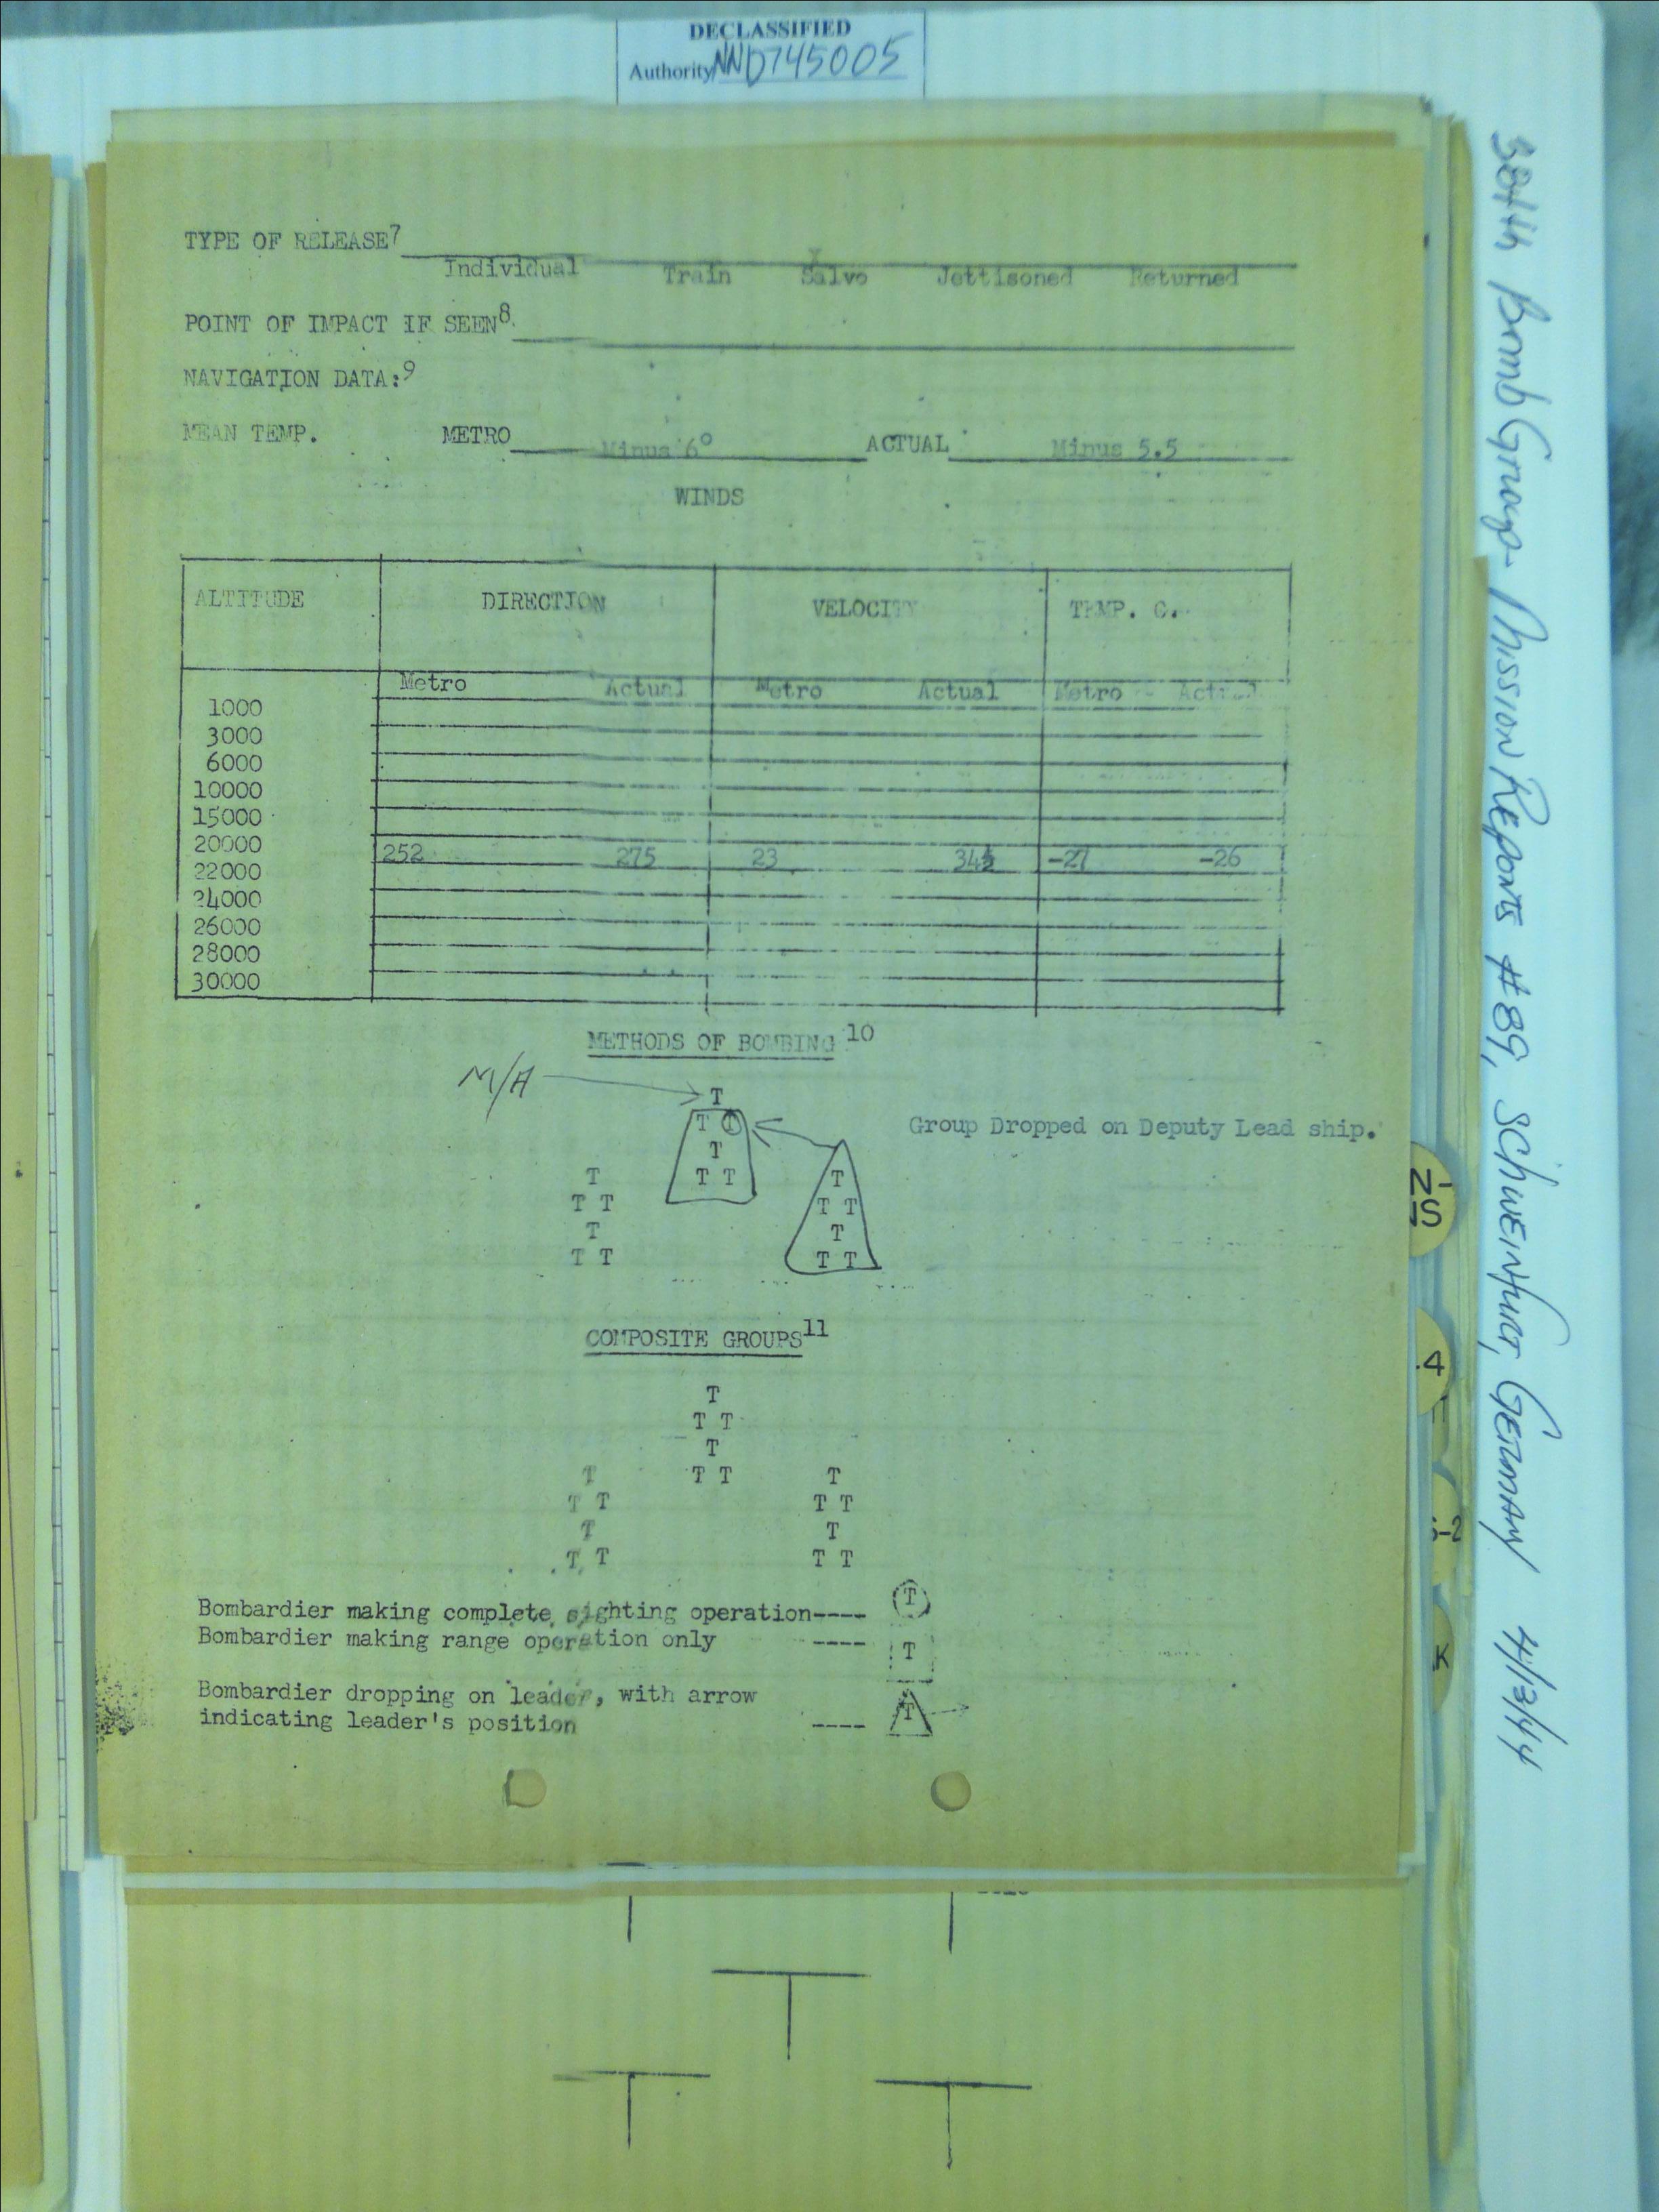 DECLASSIFIED
Authority NND745005
TYPE OF RELEASE7
X
Individual Train Salvo Jettisoned Returned
POINT OF IMPACT IF SEEN8.
NAVIGATION DATA:9
MEAN TEMP. METRO Minus 6° ACTUAL Minus 5.5
WINDS
ALTITUDE DIRECTION VELOCITY TEMP. C.
Metro Actual Metro Actual Metro Actual
1000
3000
6000
10000
15000
20000
252 275 23 34½ -27 -26
22000
24000
26000
28000
30000
METHODS OF BOMBING 10
M/A
T
T T
Group Dropped on Deputy Lead ship.
T
T T T T
T T T T
T T
T T T T
COMPOSITE GROUPS11
T
T T
T
T T T T
T T T T
T T
T T T T
Bombardier making complete sighting operation---- T
Bombardier making range operation only ---- T
Bombardier dropping on leader, with arrow
indicating leader's position ---- T
384th Bomb Group - Mission Reports #89, Schweinfurt, Germany 4/13/44
N-
NS
.4
-2
K